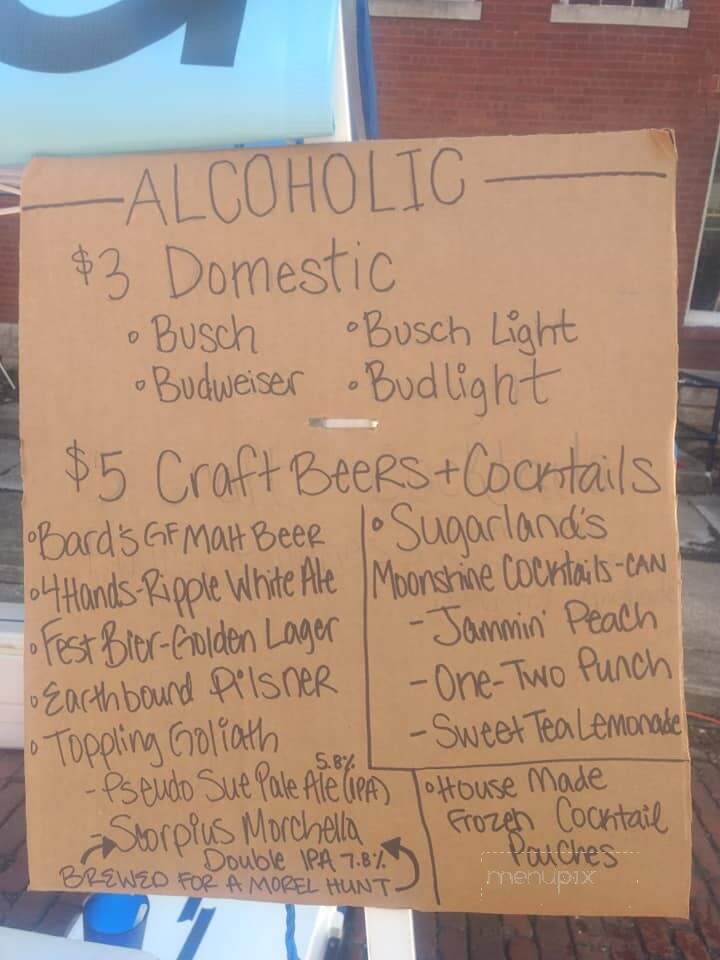 ALCOHOLIC
$3 Domestic
• Busch
• Busch Light
• Budweiser
• Budlight
$5 Craft Beers + Cocktails
• Bard's GF Malt Beer
• 4 Hands-Ripple White Ale
• Fest Bier-Golden Lager
• Earthbound Pilsner
• Toppling Goliath
5.8%
- Pseudo Sue Pale Ale (IPA)
- Scorpius Morchella
Double IPA 7.8%
BREWED FOR A MOREL HUNT
• Sugarland's
Moonshine Cocktails-CAN
- Jammin' Peach
- One-Two Punch
- Sweet Tea Lemonade
• House Made
Frozen Cocktail
Pouches
menupix